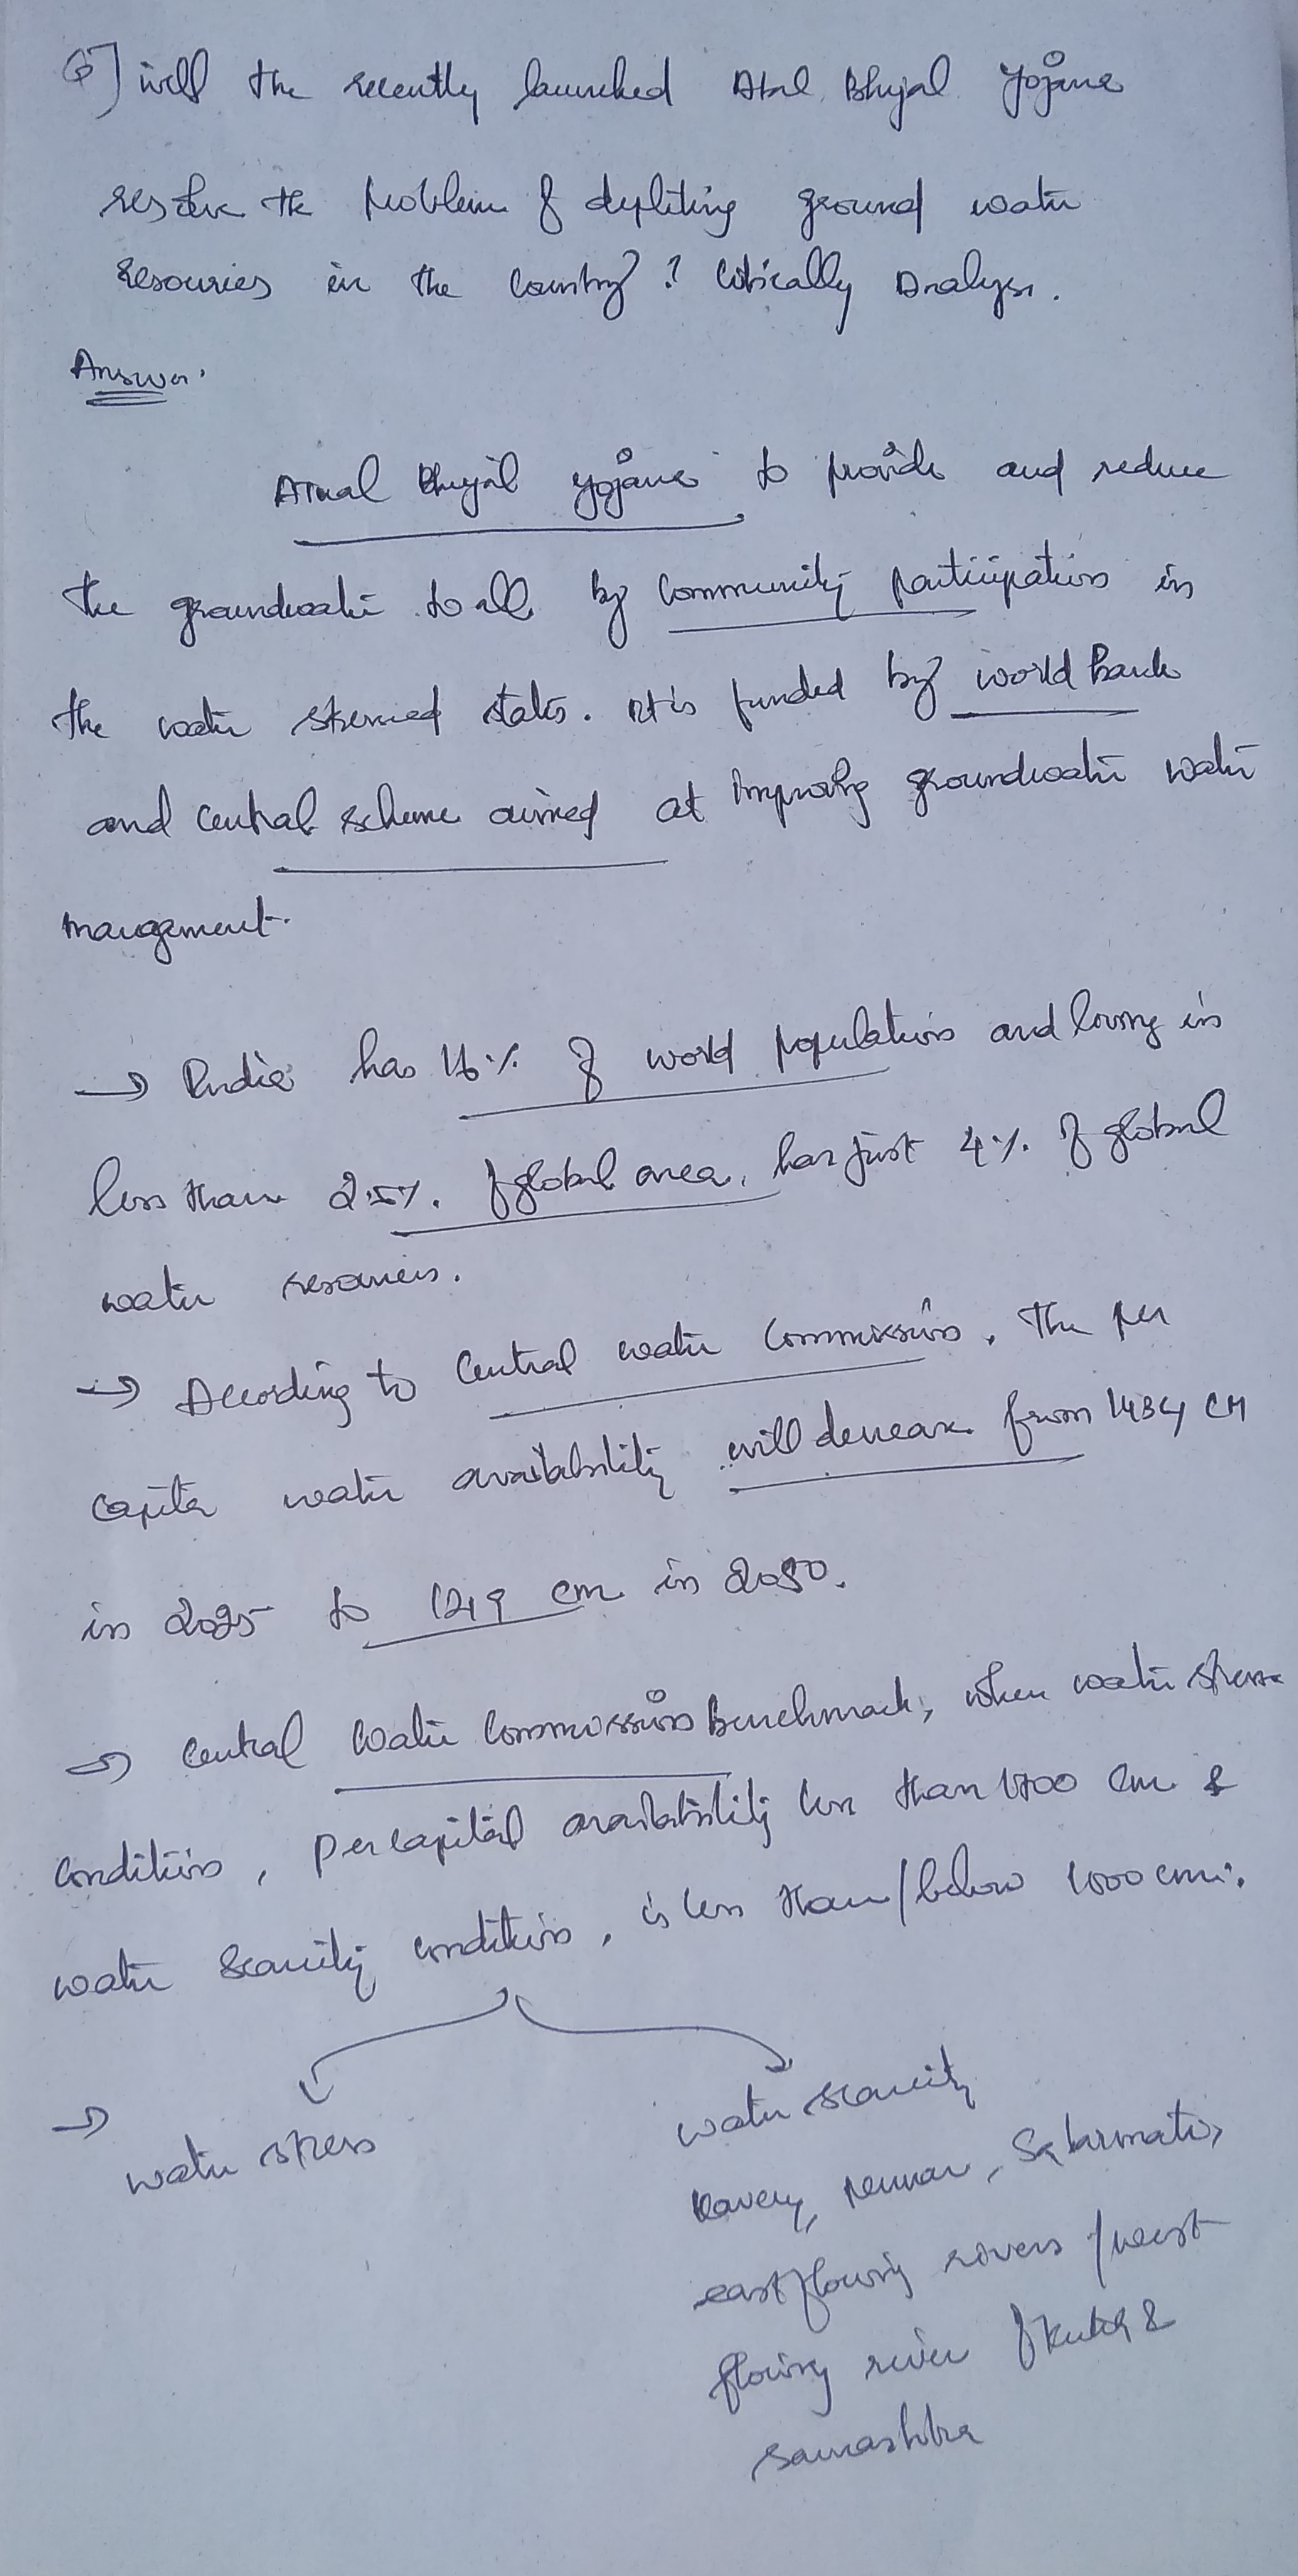 Q] will the recently launched Atal Bhujal Yojana
resolve the problem of depleting ground water
resources in the Country? Critically Analyse.
Answer.
Atual Bhujal yojana to provide and reduce
the groundwater to all by Community participation in
the water stressed states. It is funded by world Bank
and central scheme aimed at improving groundwater water
management.
→ India has 16% of world population and living in
less than 2.5% of global area, has just 4% of global
water resources.
→ According to Central water Commission, The per
capita water availability will decrease from 1434 CM
in 2025 to 1219 cm in 2050.
→ Central Water Commission Benchmark, when water stress
condition, percapital availability less than 1700 cm &
water Scarcity condition, is less than/below 1000 cm.
→ water stress
water scarcity
Kavery, pennar, Sabarmati,
east flowing rivers / west
flowing river of Kutch &
Saurashtra